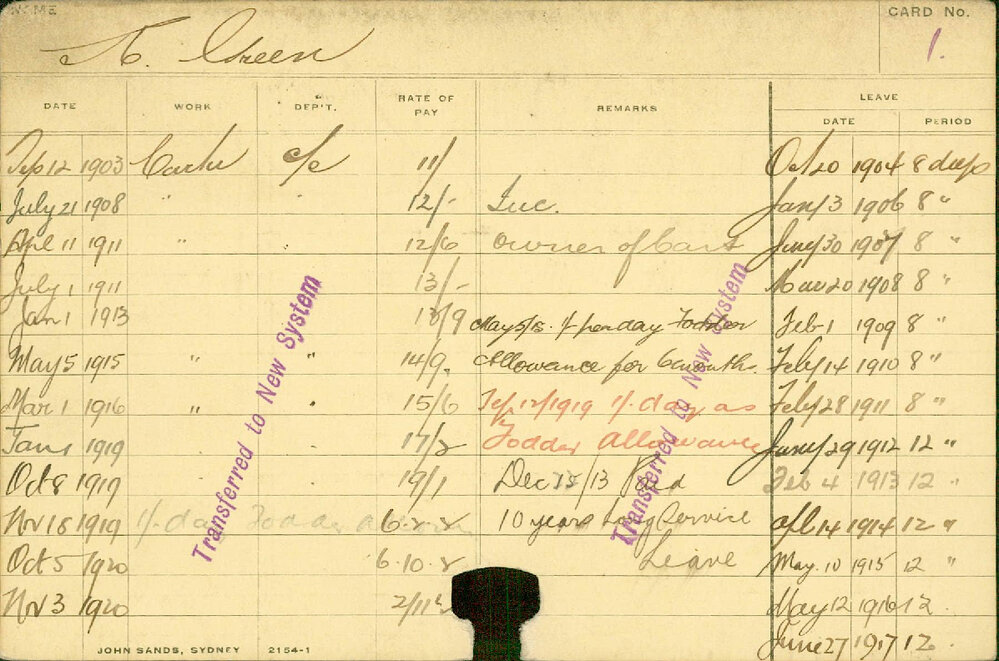 NAME
CARD No.
A. Green
1.
DATE WORK DEP'T. RATE OF PAY REMARKS LEAVE
DATE PERIOD
Sep 12 1903 Carter c/c 11/ Oct 20 1904 8 days
July 21 1908 " " 12/- Inc. Jany 3 1906 8 "
Apl 11 1911 " " 12/6 Owner of Cart June 30 1907 8 "
July 1 1911 13/- Mar 20 1908 8 "
Jan 1 1913 13/9 May 5/15. 1/ per day Fodder Feb 1 1909 8 "
May 5 1915 " " 14/9. Allowance for 6 month. Feby 14 1910 8 "
Mar 1 1916 " " 15/6 Sep 12/1919 1/ day as Feby 28 1911 8 "
Jan 1 1919 17/2 Fodder Allowance Jany 29 1912 12 "
Oct 8 1919 19/1 Dec /13 Paid Feb 4 1913 12 "
Nov 18 1919 1/- day Fodder 6.2.2 10 years Long Service Apl 14 1914 12 "
Oct 5 1920 6.10.2 Leave May. 10 1915 12 "
Nov 3 1920 2/11 May 12 1916 12.
June 27 1917 12.
Transferred to New System
Transferred to New System
JOHN SANDS, SYDNEY 2154-1